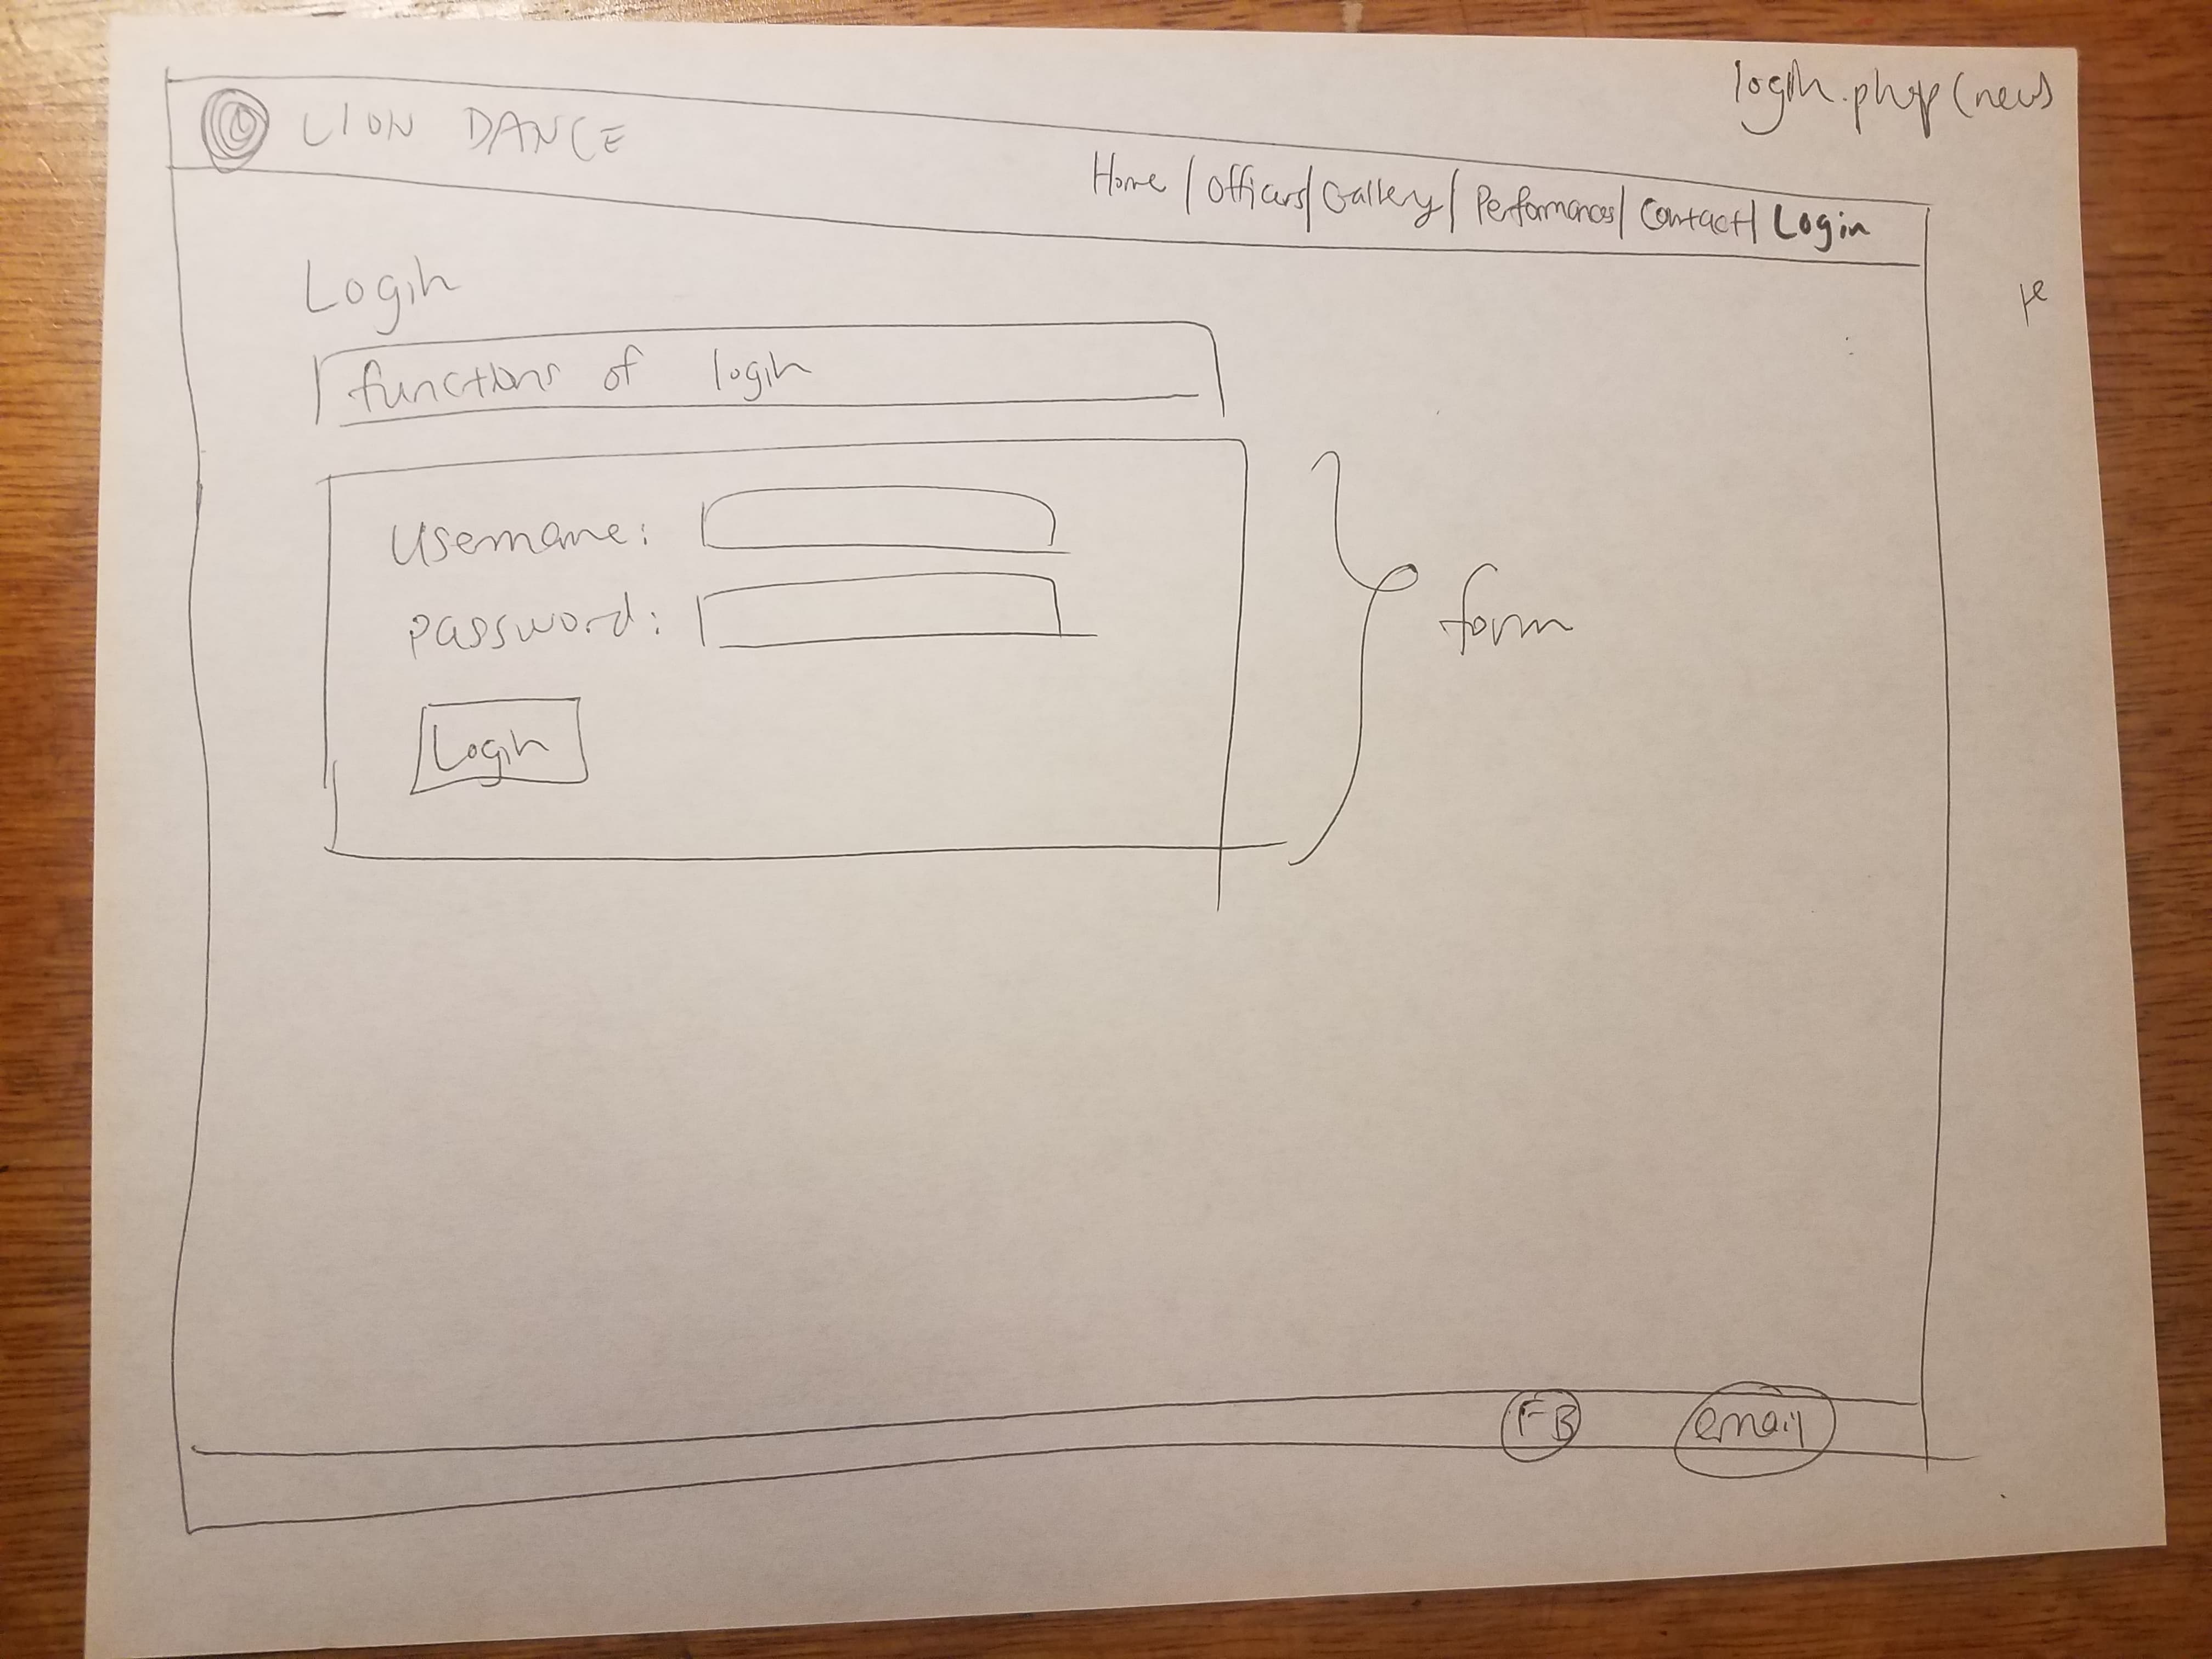 login.php (new)
LION DANCE
Home | Officers | Gallery | Performances | Contact | Login
Login
functions of login
username:
password:
form
Login
FB
email